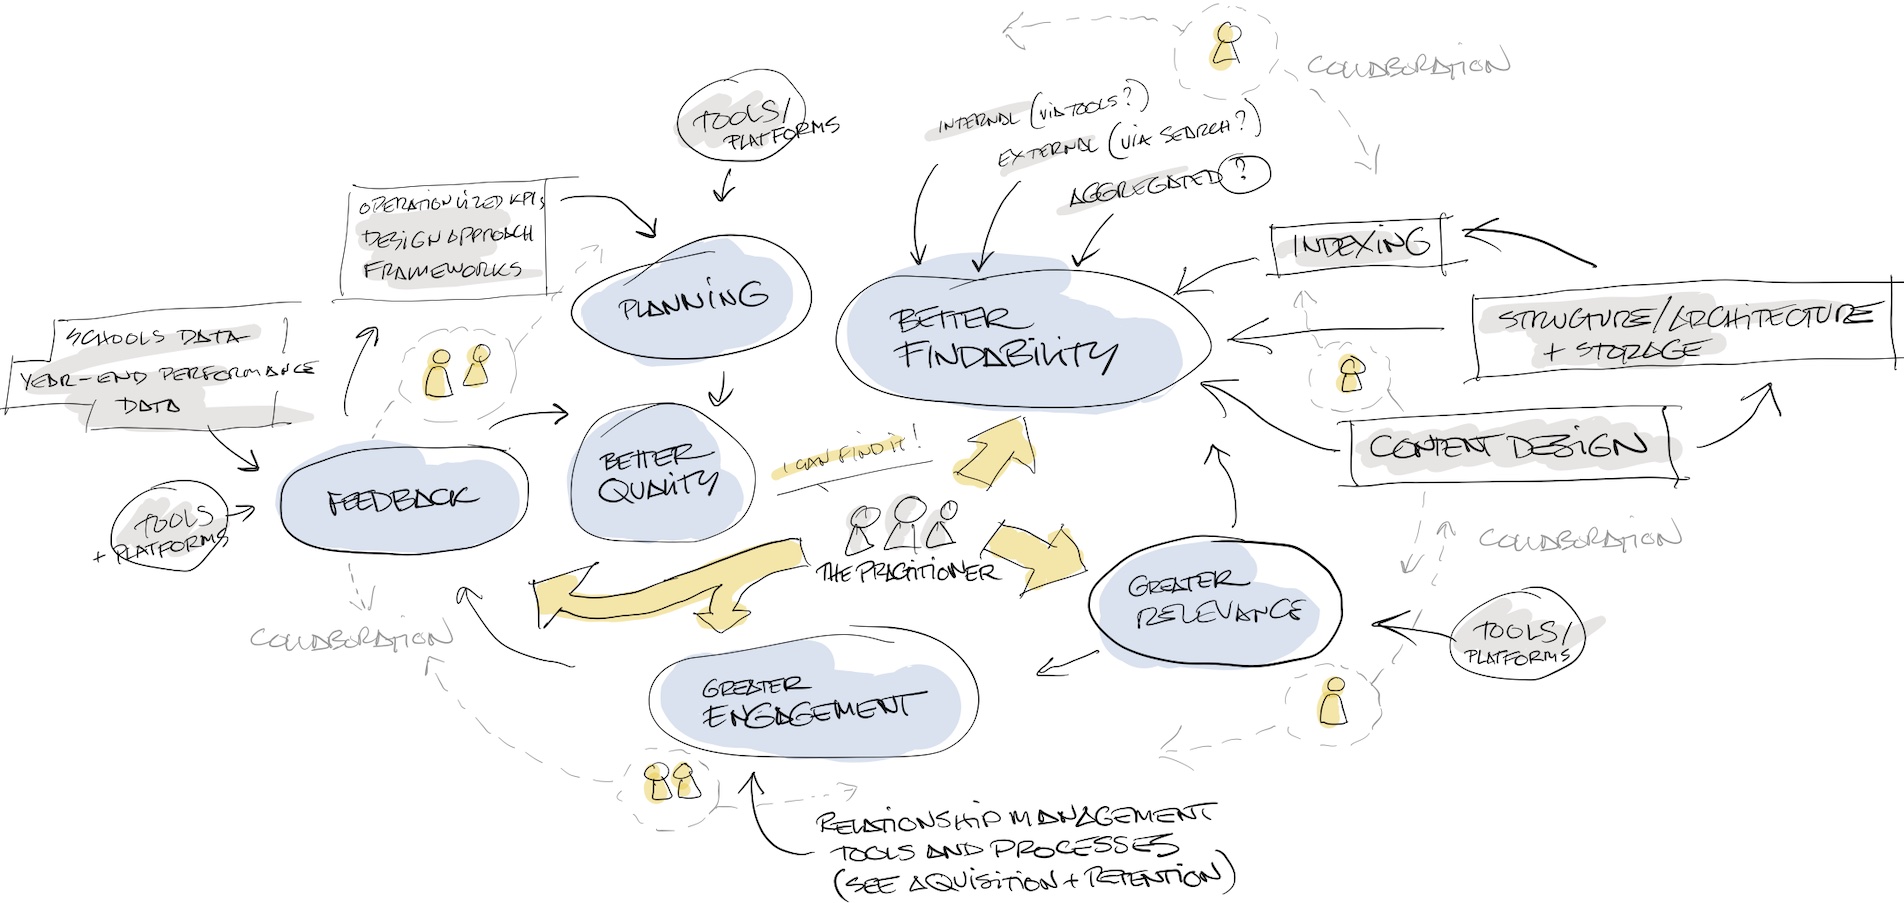 COLLABORATION
TOOLS/
PLATFORMS
INTERNAL (VIA TOOLS?)
EXTERNAL (VIA SEARCH?)
AGGREGATED?
OPERATIONLIZED KPIs
DESIGN APPROACH
FRAMEWORKS
INDEXING
PLANNING
BETTER
FINDABILITY
STRUCTURE/ARCHITECTURE
+ STORAGE
SCHOOLS DATA
YEAR-END PERFORMANCE
DATA
CONTENT DESIGN
I CAN FIND IT!
BETTER
QUALITY
FEEDBACK
TOOLS
+ PLATFORMS
THE PRACITIONER
COLLABORATION
GREATER
RELEVANCE
TOOLS/
PLATFORMS
COLLABORATION
GREATER
ENGAGEMENT
RELATIONSHIP MANAGEMENT
TOOLS AND PROCESSES
(SEE AQUISITION + RETENTION)